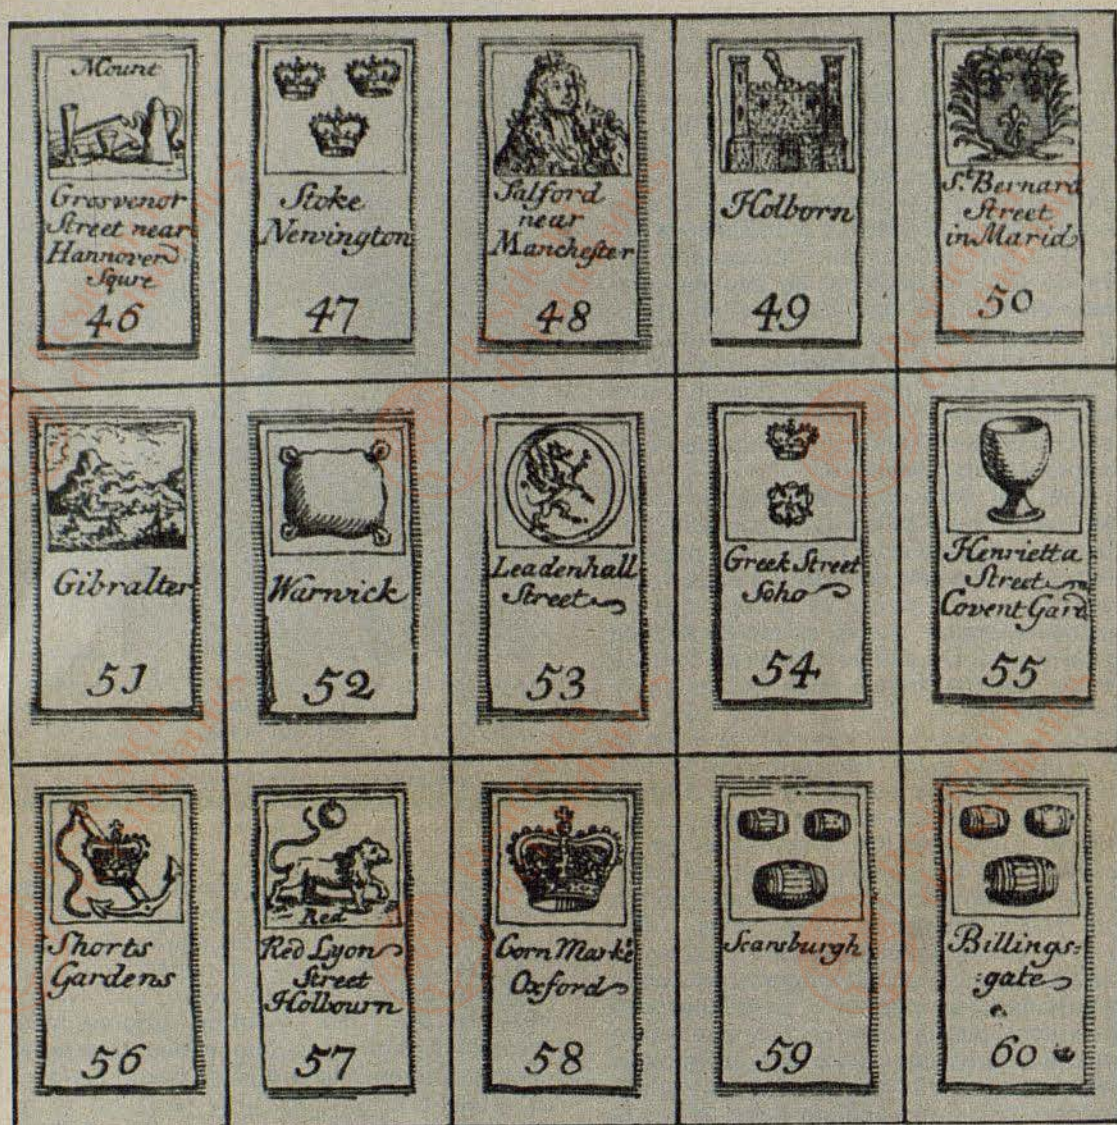 Mount
Grosvenor
Street near
Hannover
Squre
46
Stoke
Newington
47
Salford
near
Manchester
48
Holborn
49
St. Bernard
Street
in Marid
50
Gibralter
51
Warwick
52
Leadenhall
Street
53
Greek Street
Soho
54
Henrietta
Street
Covent Gard
55
Shorts
Gardens
56
Red
Red Lyon
Street
Holbourn
57
Corn Marke
Oxford
58
Scarsburgh
59
Billings:
:gate
60